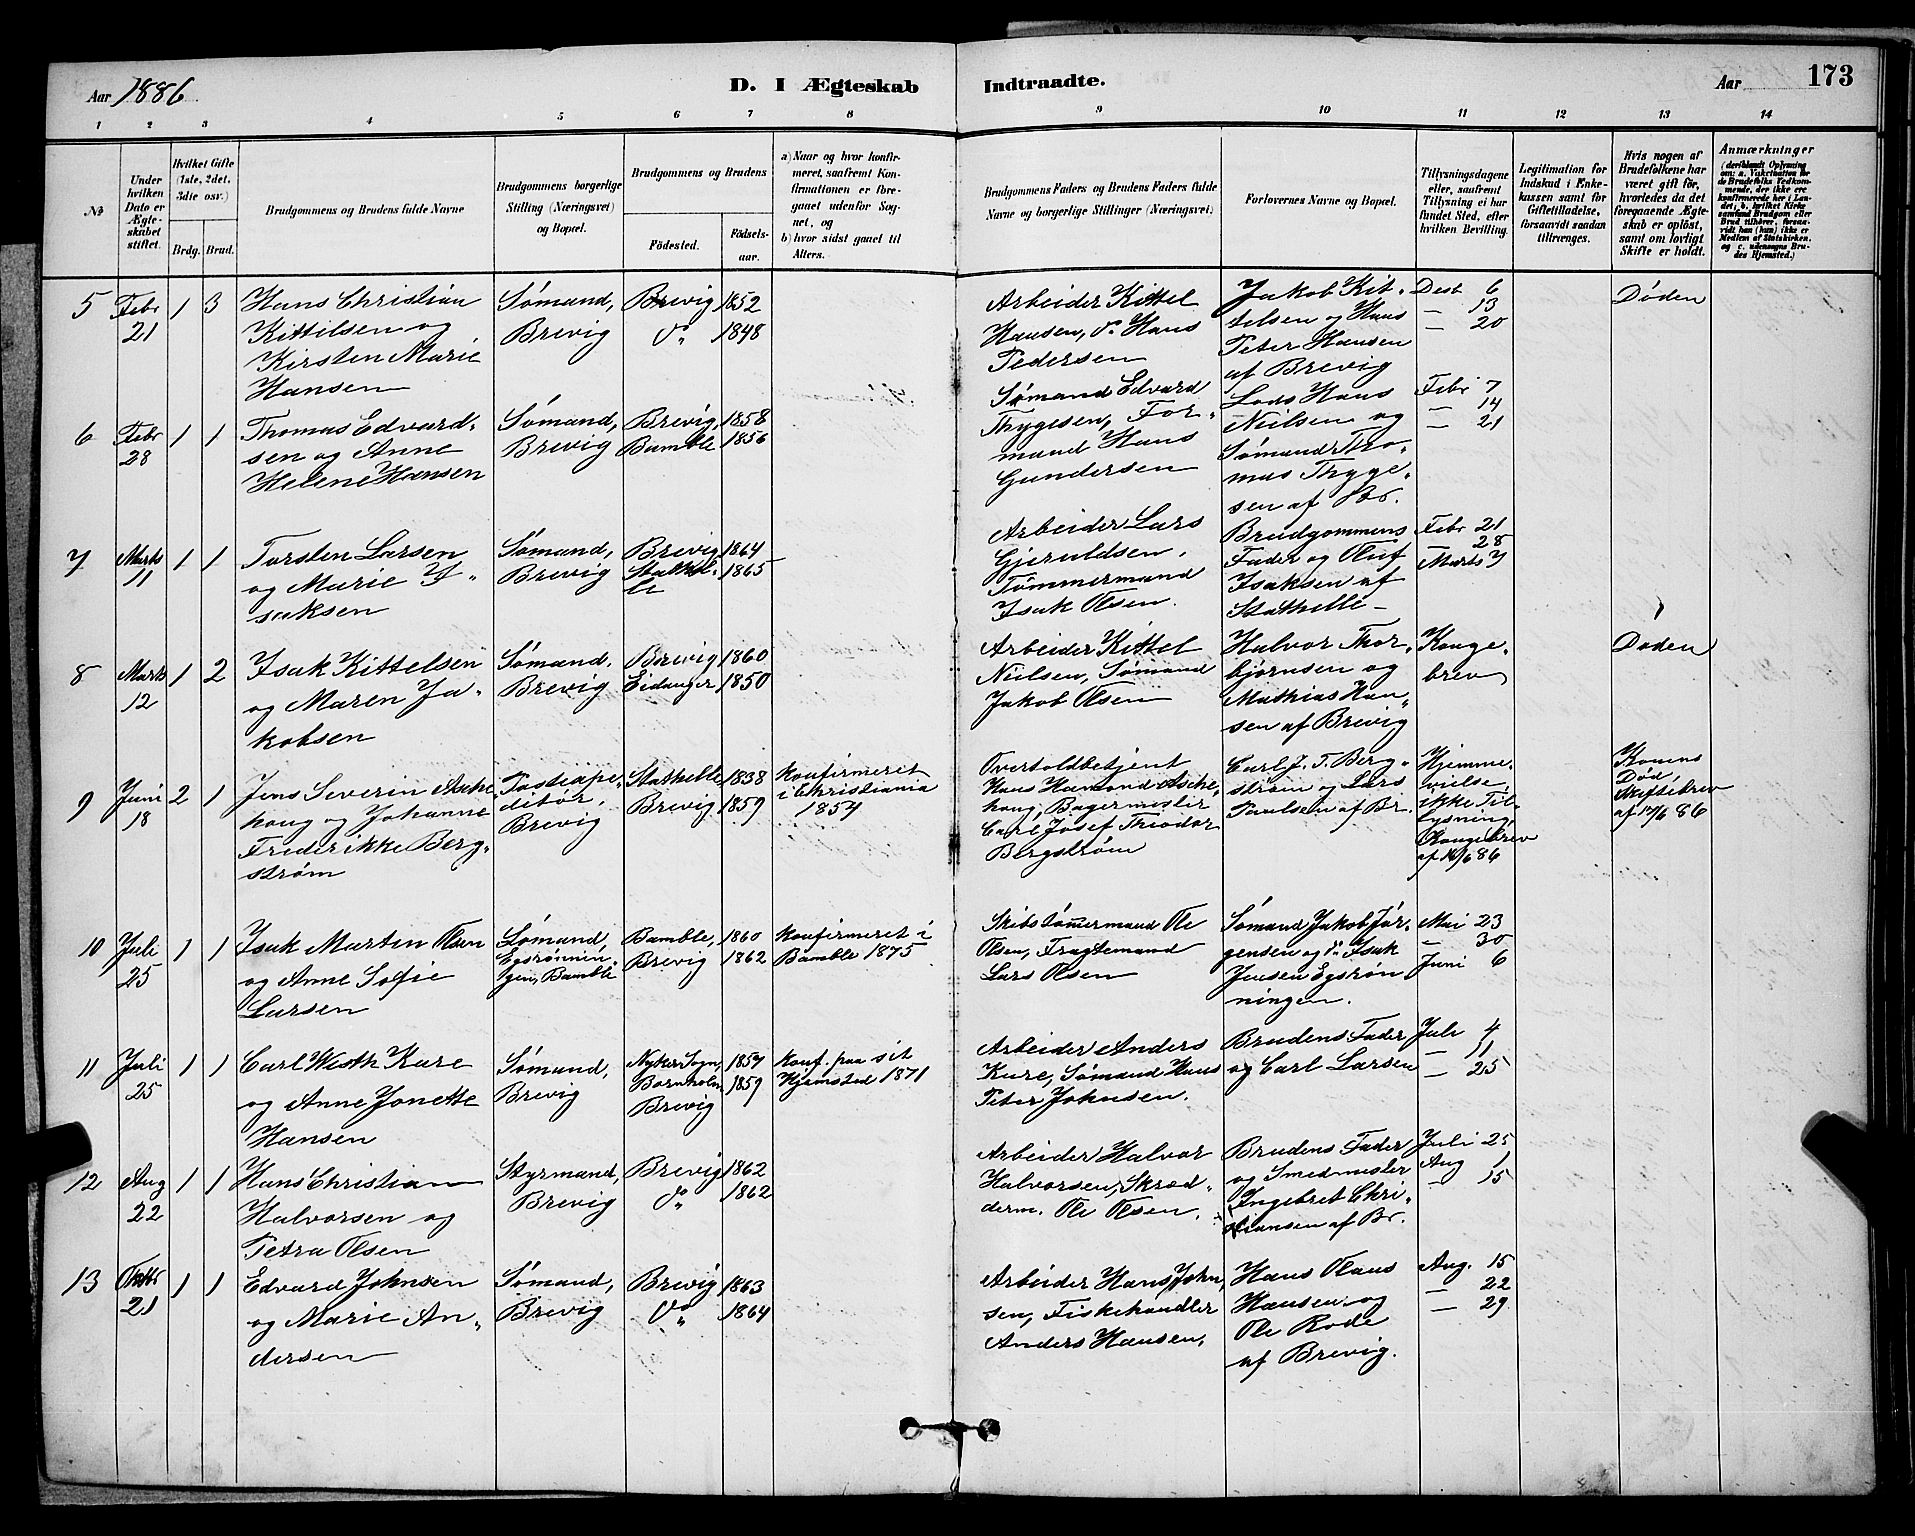 Aar 1886. D. I Ægteskab Indtraadte. Aar 173
1 2 3 4 5 6 7 8 9 10 11 12 13 14
No
Under hvilken Dato er Ægteskabet stiftet.
Hvilket Gifte (1ste, 2det, 3die osv.)
Brdg. Brud.
Brudgommens og Brudens fulde Navne
Brudgommens borgerlige Stilling (Næringsvei) og Bopæl.
Brudgommens og Brudens
Fødested.
Fødselsaar.
a) Naar og hvor konfirmeret, saafremt Konfirmationen er foregaaet udenfor Sognet, og
b) hvor sidst gaaet til Alters.
Brudgommens Faders og Brudens Faders fulde Navne og borgerlige Stillinger (Næringsvei)
Forlovernes Navne og Bopæl.
Tillysningsdagene eller, saafremt Tillysning ei har fundet Sted, efter hvilken Bevilling.
Legitimation for Indskud i Enkekassen samt for Giftetilladelse, forsaavidt saadan tiltrænges.
Hvis nogen af Brudefolkene har været gift før, hvorledes da det foregaaende Ægteskab er opløst, samt om lovligt Skifte er holdt.
Anmærkninger
(deriblandt Oplysning om: a. Vakcination for de Brudefolks Vedkommende, der ikke ere konfirmerede her i Landet; b. hvilket Kirkesamfund Brudgom eller Brud tilhører, forsavidt han (hun) ikke er Medlem af Statskirken, og c. udensogns Brudes Hjemsted.)
5 Febr 21 1 3
Hans Christian
Kittilsen og
Kirsten Marie
Hansen
Sømand,
Brevig
Brevig 1852
do 1848
Arbeider Kittel
Hansen, do Hans
Pedersen
Jakob Kit-
telsen og Hans
Peter Hansen
af Brevig
6
— 13
— 20
Døden
6 Febr 28 1 1
Thomas Edvard-
sen og Anne
Helene Hansen
Sømand,
Brevig
Brevig, 1858
Bamble 1856
Sømand Edvard
Thygesen, For-
mand Hans
Gundersen
Lods Hans
Nielsen og
Sømand Tho-
mas Thyge-
sen af Br.
Febr 7
— 14
— 21
7 Marts 11 1 1
Torsten Larsen
og Marie I-
saksen
Sømand,
Brevig
Brevig 1864
Stathel- 1865
le
Arbeider Lars
Gjeruldsen,
Tømmermand
Isak Olsen.
Brudgommens
Fader og Oluf
Isaksen af
Stathelle
Febr 21
28
Marts 7
8 Marts 12 1 2
Isak Kittelsen
og Maren Ja-
kobsen
Sømand.
Brevig
Brevig 1860
Eidanger 1850
Arbeider Kittel
Nielsen, Sømand
Jakob Olsen
Halvor Thor-
bjørnsen og
Mathias Han-
sen af Brevig
Konge-
brev
Døden
9 Juni 18 2 1
Jens Severin Asche-
houg og Johanne
Frederikke Berg-
strøm
Postexpe-
ditør,
Brevig
Stathelle 1838
Brevig 1859
Konfirmeret
i Christiania
1854
Overtoldbetjent
Hans Hamond Asche-
houg, Bagermester
Carl Josef Theodor
Bergstrøm
Carl J. T. Berg-
strøm og Lars
Paulsen af Br.
Hjemme-
vielse,
ikke Til-
lysning,
Kongebrev
af 14/6 86
Konens
Død,
Skiftebrev
af 12/6 86
10 Juli 25 1 1
Isak Martin Olsen
og Anne Sofie
Larsen
Sømand,
Egsrønnin-
gen, Bamble
Bamble, 1860
Brevig 1862
Konfirmeret i
Bamble 1875
Skibstømmermand Ole
Olsen, Fragtemand
Lars Olsen
Sømand Jakob Jør-
gensen og do Isak
Jensen Egsrøn-
ningen.
Mai 23
— 30
Juni 6
11 Juli 25 1 1
Carl Westh Kure
og Anne Jonette
Hansen
Sømand,
Brevig
Nyker Sogn, 1857
Bornholm 1859
Brevig
Konf. paa sit
Hjemsted 1871
Arbeider Anders
Kure, Sømand Hans
Peter Johnsen.
Brudens Fader
og Carl Larsen
Juli 4
— 11
— 25
12 Aug 22 1 1
Hans Christian
Halvorsen og
Petra Olsen
Styrmand,
Brevig
Brevig 1862
do 1862
Arbeider Halvor
Halvorsen, Skræd-
derm. Ole Olsen.
Brudens Fader
og Smedmester
Ingebret Chri-
stiansen af Br.
Juli 25
Aug 1
— 15
13 21 1 1
Edvard Johnsen
og Marie An-
dersen
Sømand,
Brevig
Brevig 1863
do 1864
Arbeider Hans John-
sen, Fiskehandler
Anders Hansen,
Hans Olaus
Hansen og
Ole Rode
af Brevig.
Aug. 15
— 22
— 29